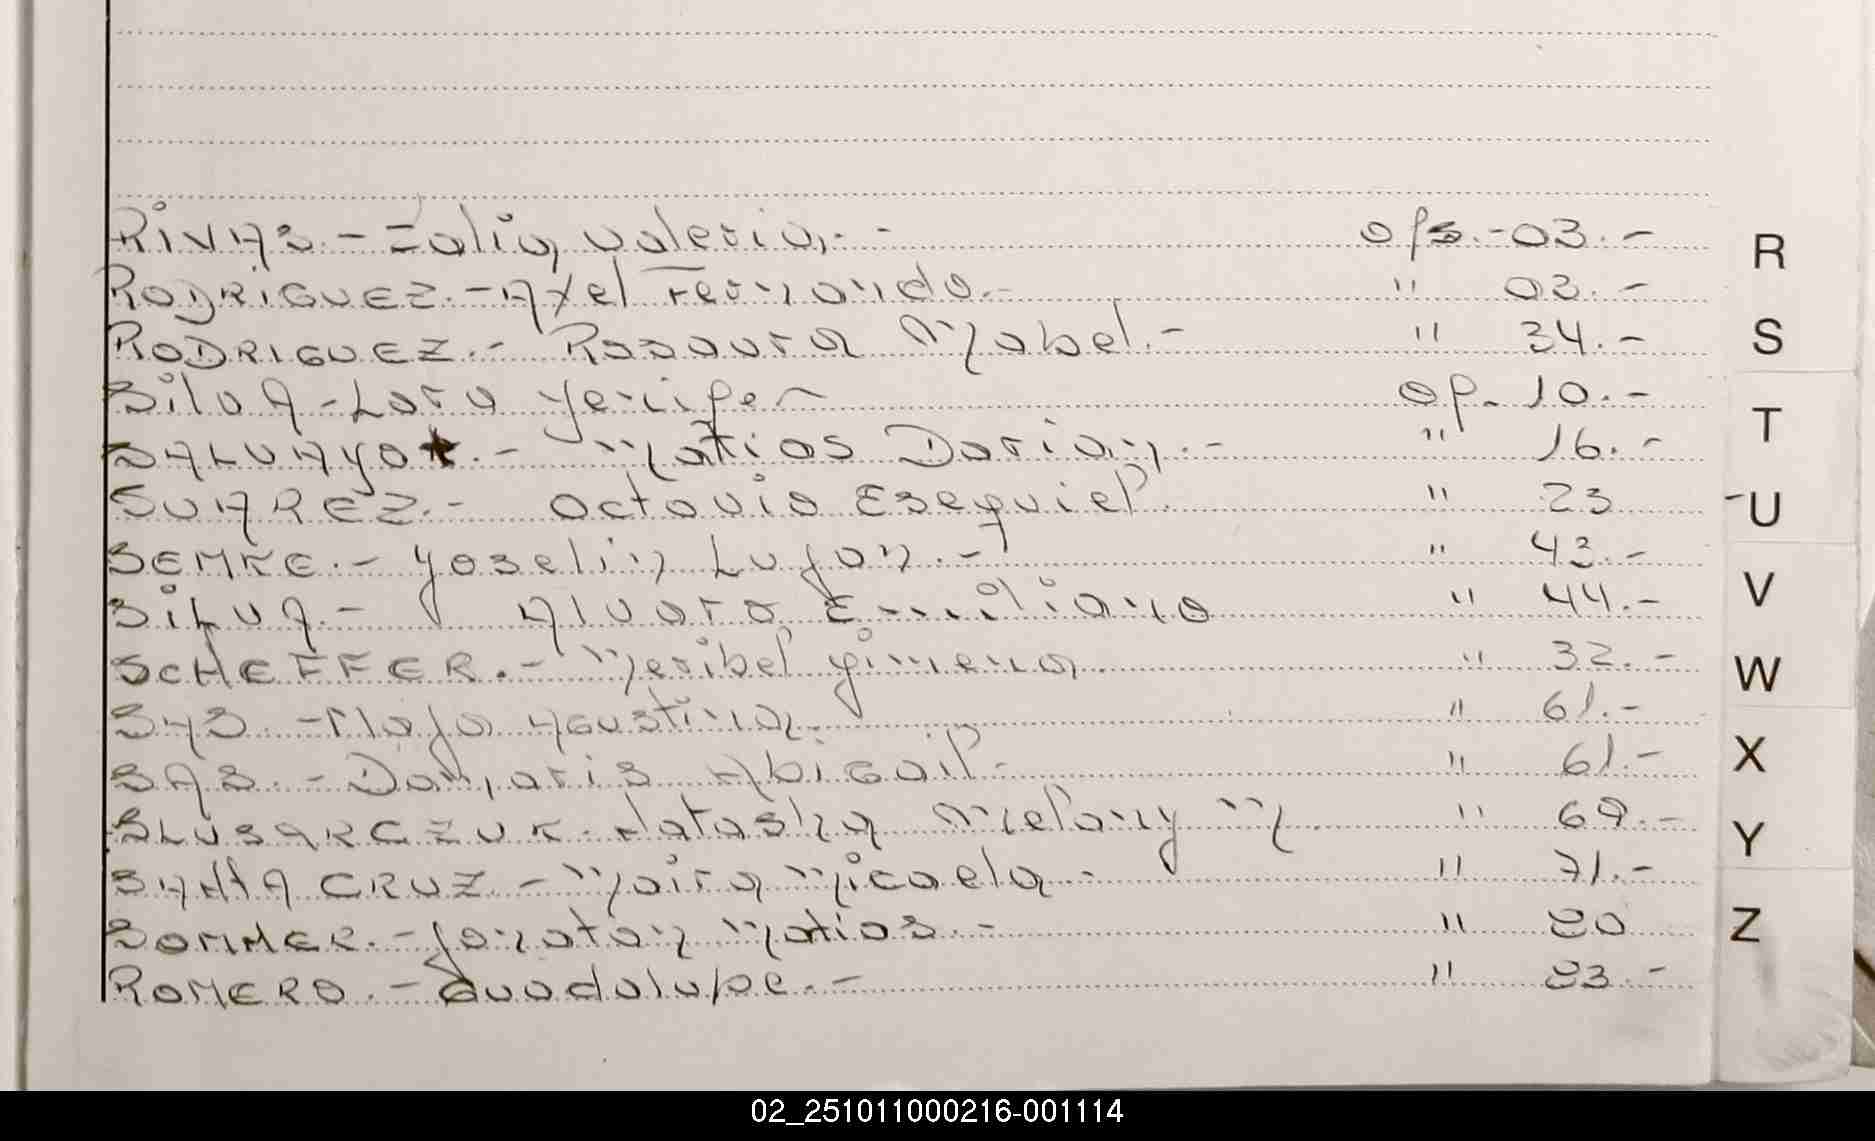 RiVAS. - Zalia, Valeria. - - ofs. - 03. -
RODRiGUEZ. - Axel Fernando. " 03. -
RODRIGUEZ. - Rosaura Mabel. - " 34. -
SilvA - Lara Yenifer op. 10. -
SALVAYOt. - Matias Darian. - " 16. -
SUAREZ. - Octavio Esequiel. " 23
SEMKE. - Yoselin Lujan. - " 43. -
SiLVA. - Alvaro Emiliano " 44. -
ScHEFFER. - Meribel Gimena. " 32. -
SAS. - Maja Agustina. " 61. -
SAS. - Damaris Abigail - " 61. -
SLUSARCZUK. Natasha Mielany M. " 69. -
SANtA CRUZ. - Maira Micaela. - " 71. -
SOMMER. - Jonatan Matias. - " 80
ROMERO. - Guadalupe. - " 83. -
R
S
T
U
V
W
X
Y
Z
02_251011000216-001114